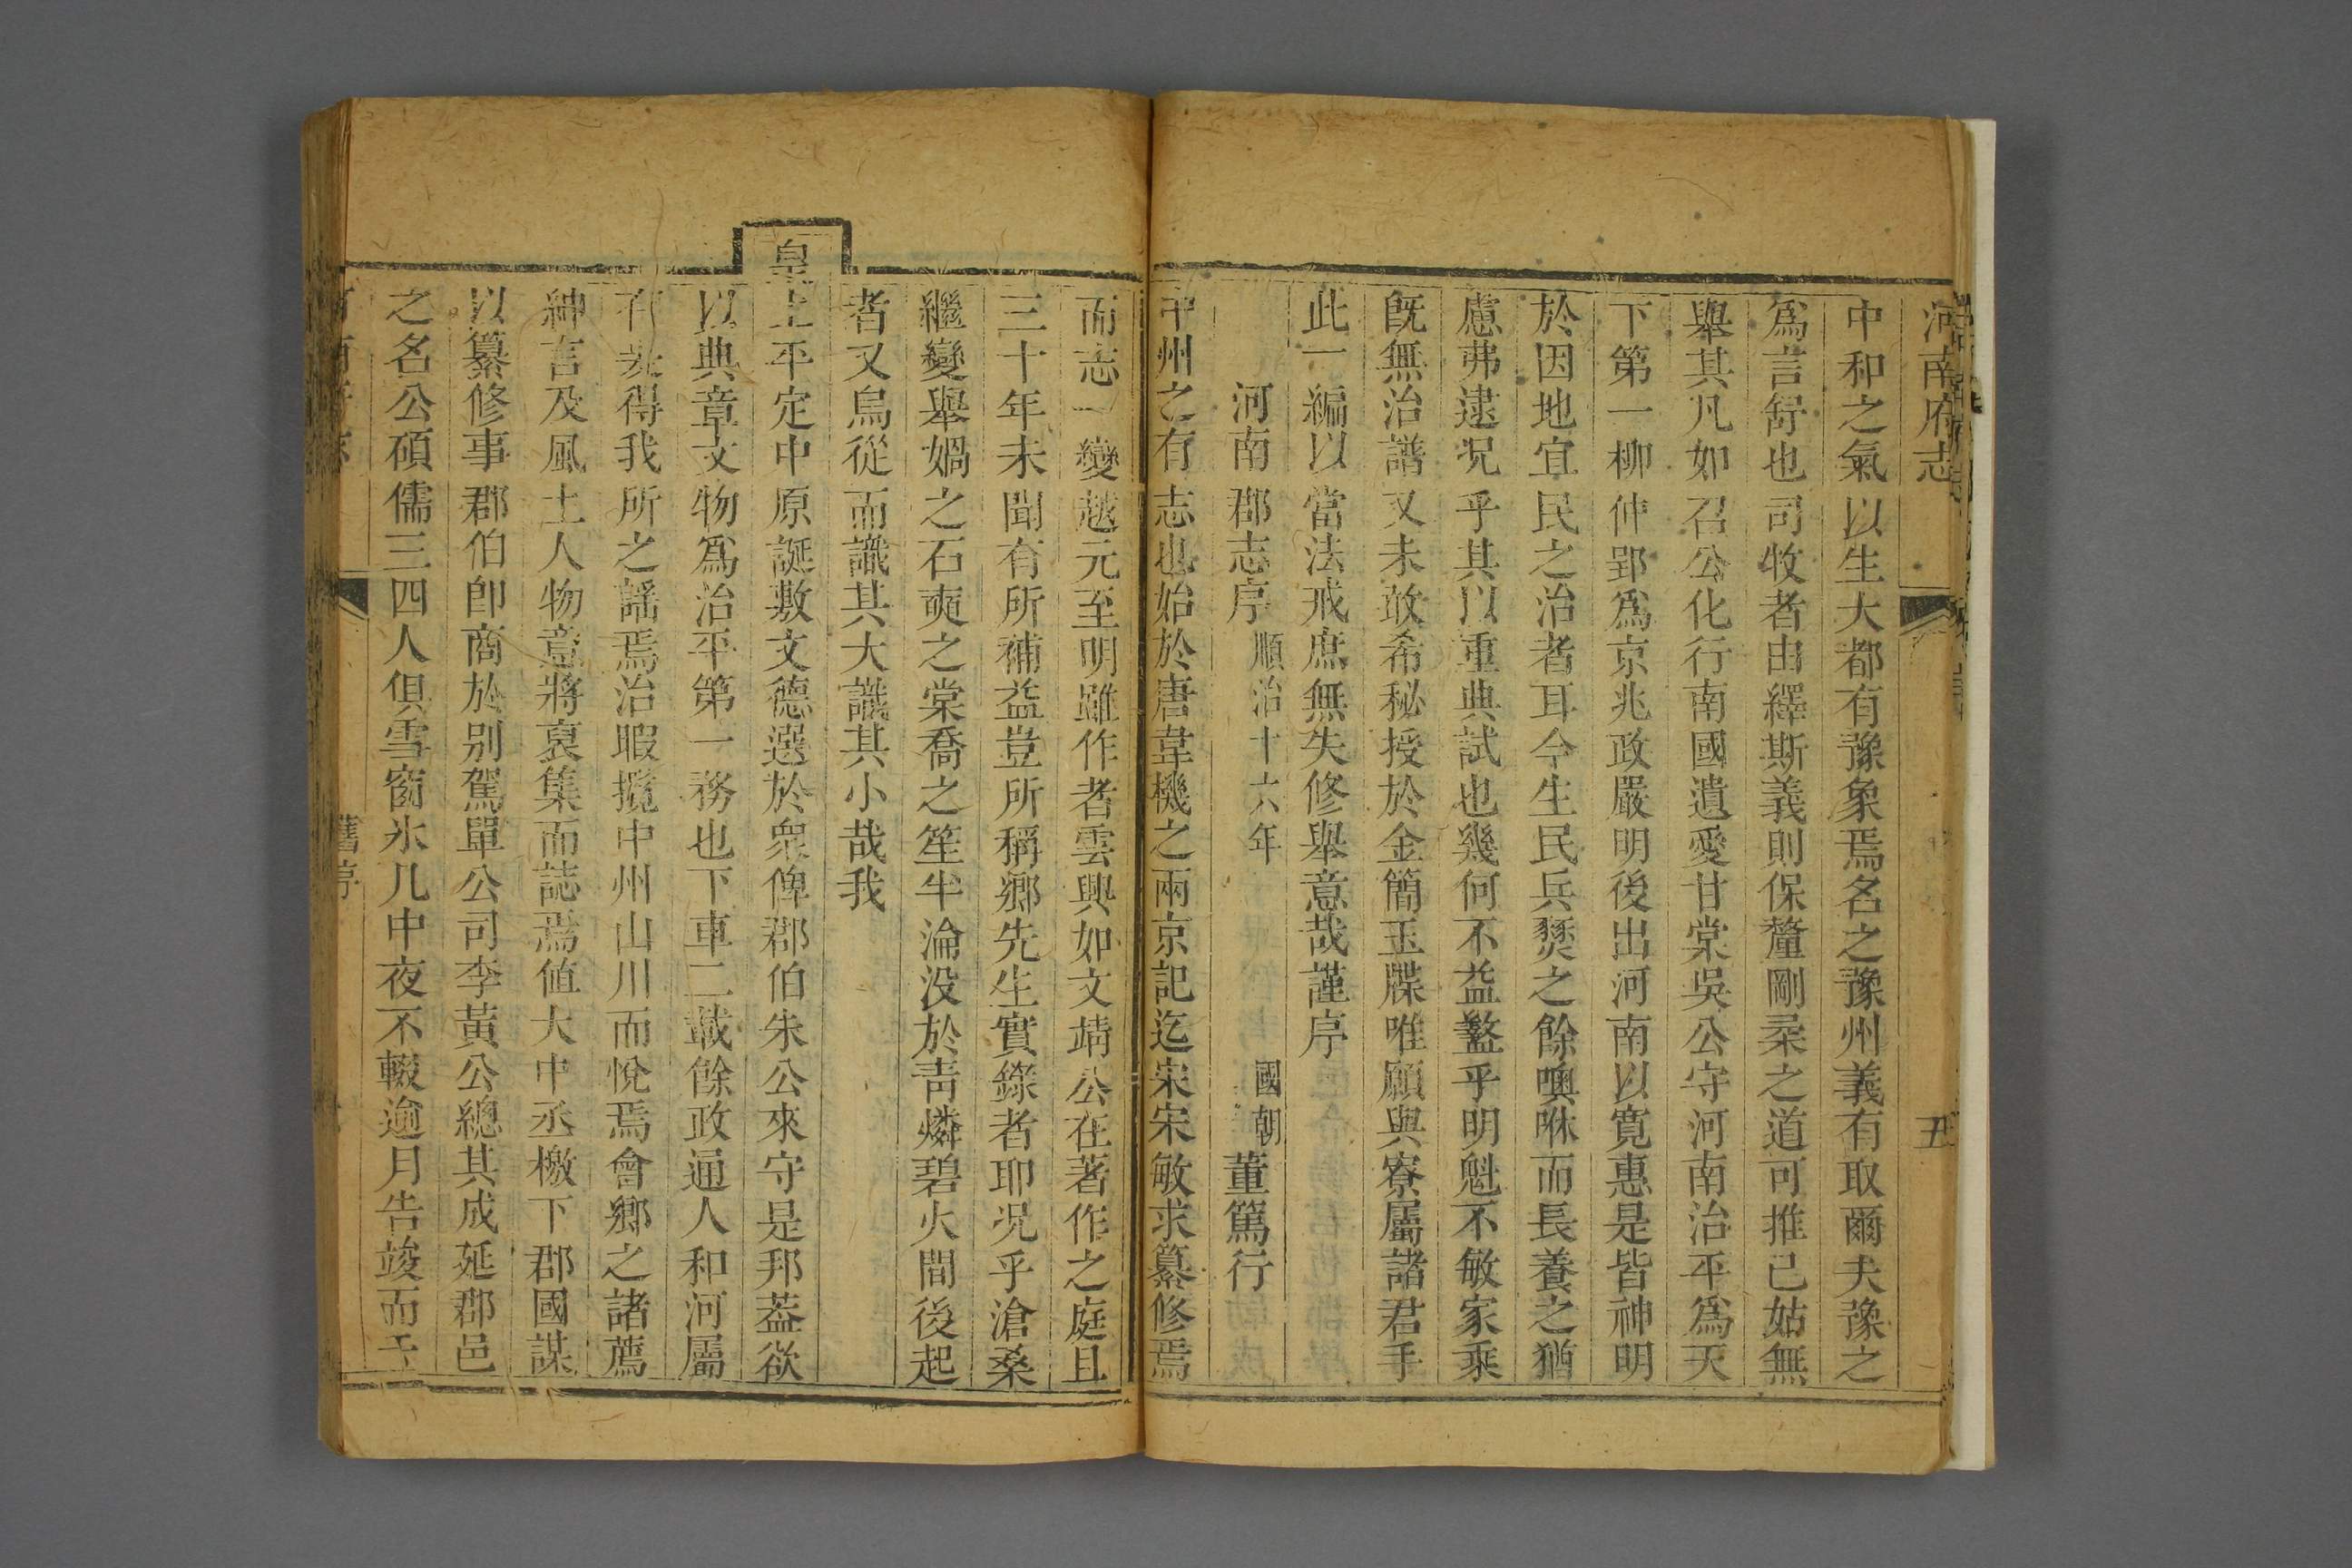 河南府志　五
中和之氣以生大都有豫象焉名之豫州義有取爾夫豫之
爲言舒也司牧者由繹斯義則保釐剛柔之道可推已姑無
舉其凡如召公化行南國遺愛甘棠吳公守河南治平爲天
下第一柳仲郢爲京兆政嚴明後出河南以寬惠是皆神明
於因地宜民之治者耳今生民兵燹之餘噢咻而長養之猶
慮弗逮况乎其以重典試也幾何不益盭乎明魁不敏家乘
旣無治譜又未敢希秘授於金簡玉牒唯願與寮屬諸君手
此一編以當法戒庶無失修舉意哉謹序
河南郡志序　順治十六年　國朝　董篤行
中州之有志也始於唐韋機之兩京記迄宋宋敏求纂修焉
而志一變越元至明雖作者雲興如文靖公在著作之庭且
三十年未聞有所補益豈所稱鄉先生實錄者耶况乎滄桑
繼變舉媧之石奭之棠喬之笙半淪没於靑燐碧火間後起
者又烏從而識其大識其小哉我
皇上平定中原誕敷文德選於衆俾郡伯朱公來守是邦葢欲
以典章文物爲治平第一務也下車二載餘政通人和河屬
有丟得我所之謠焉治暇攬中州山川而悅焉會鄉之諸薦
紳言及風土人物意將裒集而誌焉値大中丞檄下郡國謀
以纂修事郡伯卽商於別駕單公司李黃公總其成延郡邑
之名公碩儒三四人俱雪窗氷几中夜不輟逾月告竣而予
舊序